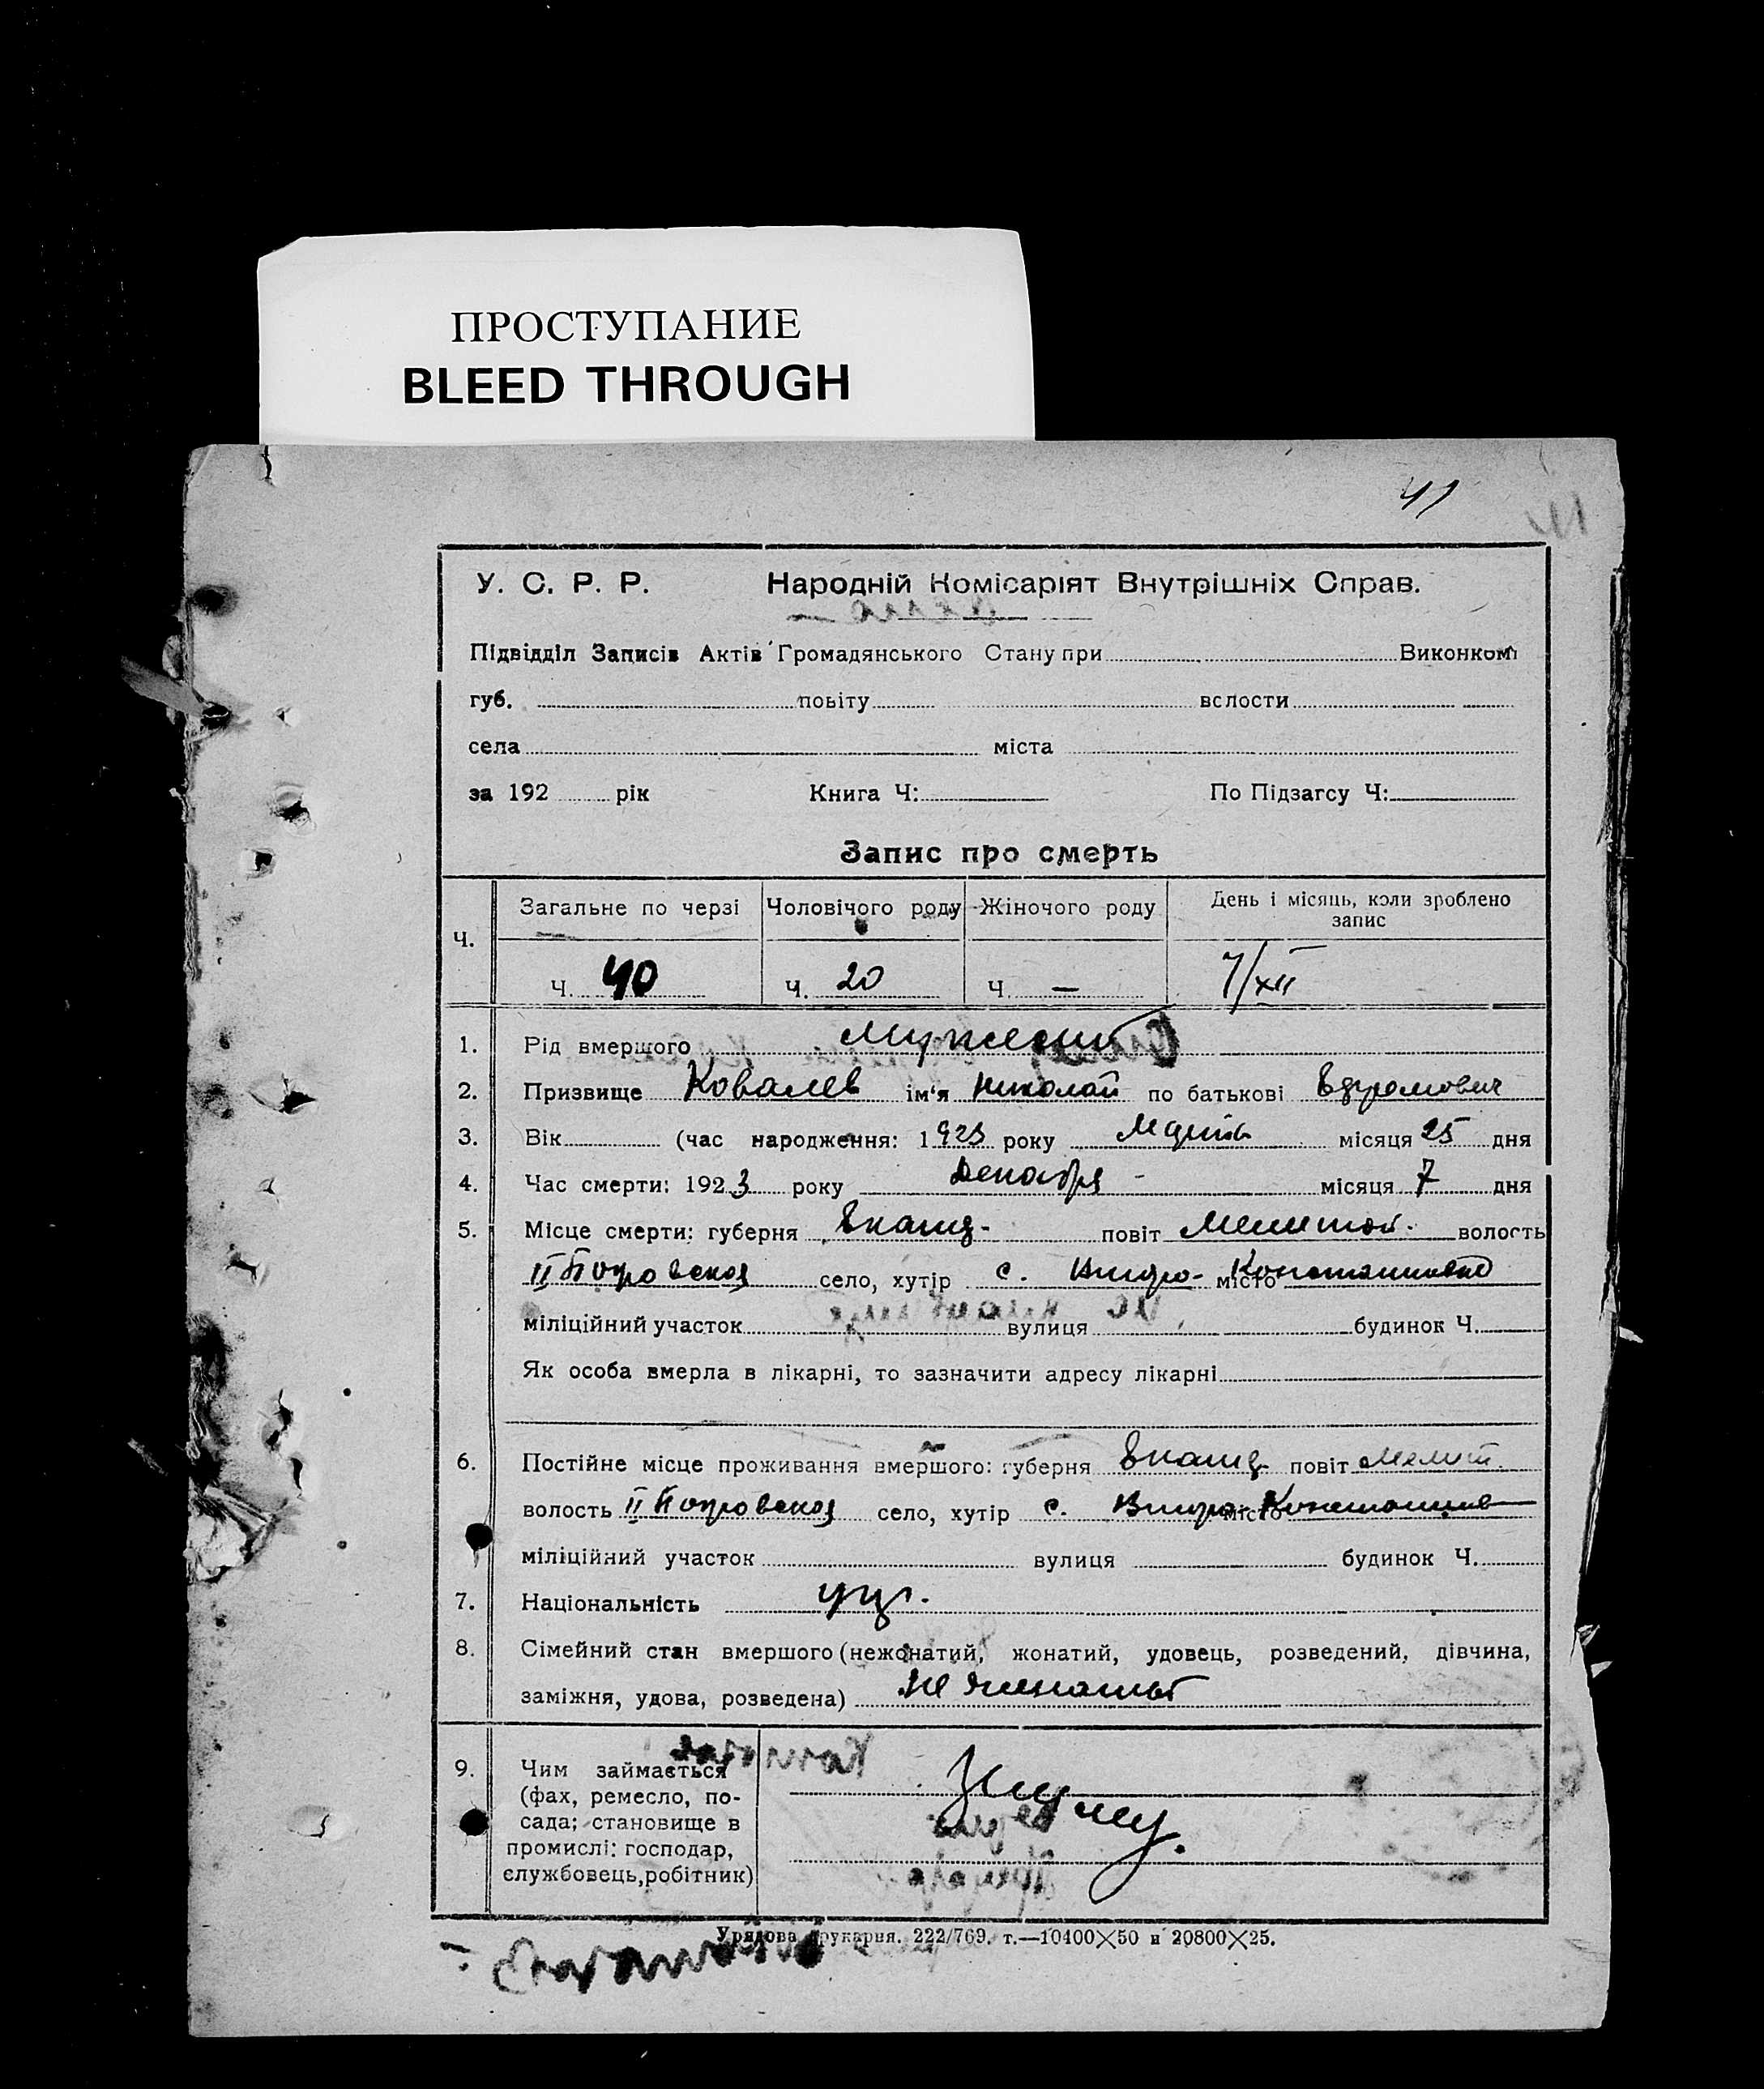 ПРОСТУПАНИЕ
BLEED THROUGH
41
У. С. Р. Р. Народній Комісаріят Внутрішніх Справ.
Підвідділ Записів Актів Громадянського Стану при Виконком
губ. повіту волости
села міста
за 192 рік Книга Ч: По Підзагсу Ч:
Запис про смерть
Ч. Загальне по черзі Чоловічого роду Жіночого роду День і місяць, коли зроблено
запис
Ч. 40 Ч. 20 Ч. — 7/XII
1. Рід вмершого мужеский
2. Призвище Ковалев ім'я Николай по батькові
3. Вік (час народження: 1923 року місяця 25 дня
4. Час смерти: 1923 року Декабря місяця 7 дня
5. Місце смерти: губерня Екат. повіт Мелитой. волость
II Покровская село, хутір с. Нитро- місто Константиновка
міліційний участок вулиця будинок Ч.
Як особа вмерла в лікарні, то зазначити адресу лікарні
6. Постійне місце проживання вмершого: губерня Екат. повіт Мелит.
волость II Покровская село, хутір с. місто
міліційний участок вулиця будинок Ч.
7. Національність укр.
8. Сімейний стан вмершого (нежонатий, жонатий, удовець, розведений, дівчина,
заміжня, удова, розведена) не женатый
9. Чим займається
(фах, ремесло, по-
сада; становище в
промислі: господар,
службовець, робітник)
Урядова друкарня. 222/769. т.—10400×50 и 20800×25.